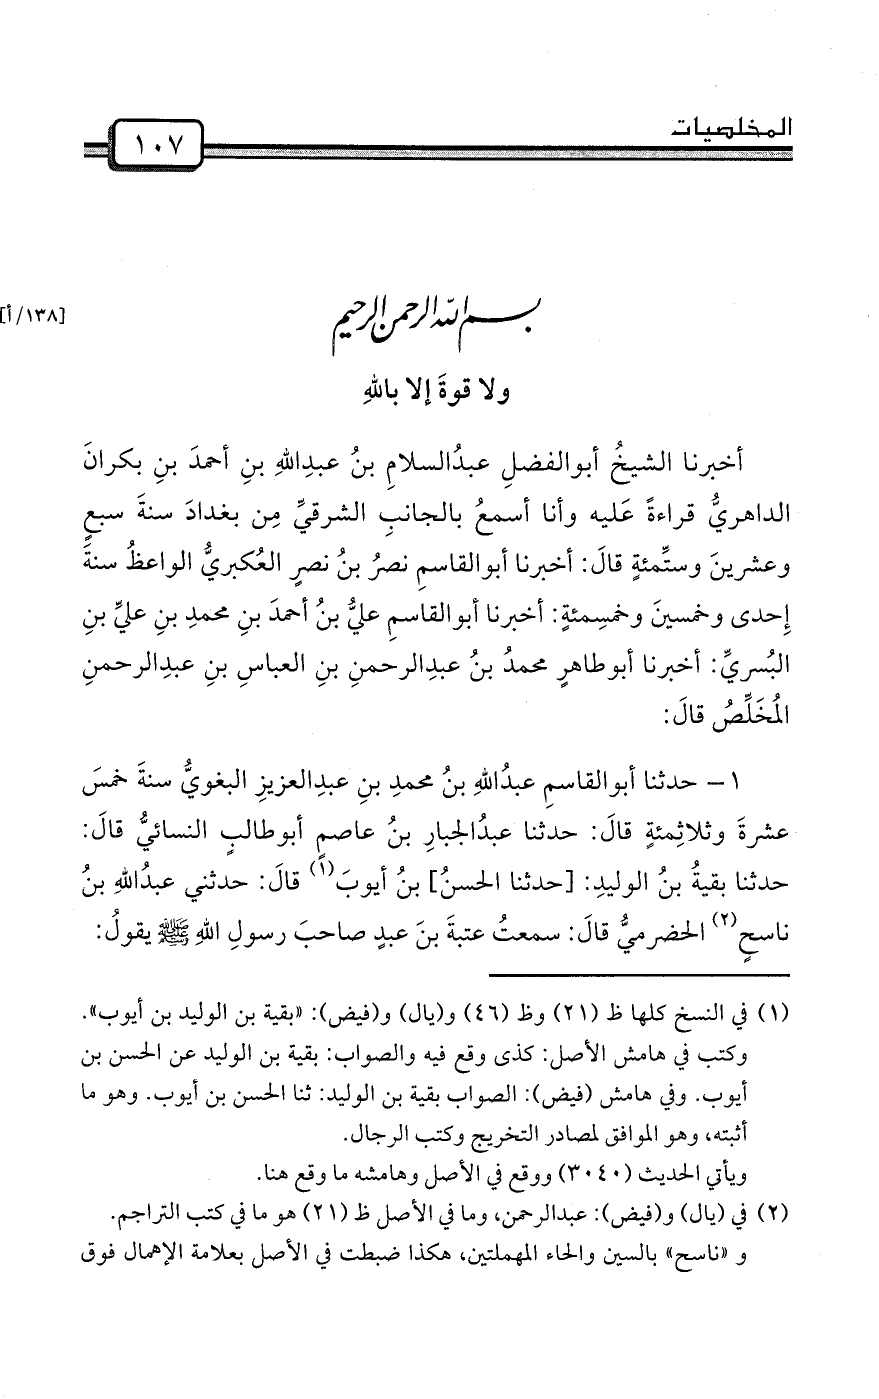 المخلصيات
١٠٧
[١٣٨/أ]
بسم الله الرحمن الرحيم
ولا قوةَ إلا باللهِ
أخبرنا الشيخُ أبوالفضلِ عبدُالسلامِ بنُ عبدِاللهِ بنِ أحمدَ بنِ بكرانَ
الداهريُّ قراءةً عَليه وأنا أسمعُ بالجانبِ الشرقيِّ مِن بغدادَ سنةَ سبعٍ
وعشرينَ وستِّمئةٍ قالَ: أخبرنا أبوالقاسمِ نصرُ بنُ نصرٍ العُكبريُّ الواعظُ سنةَ
إحدى وخمسينَ وخمسِمئةٍ: أخبرنا أبوالقاسمِ عليُّ بنُ أحمدَ بنِ محمدِ بنِ عليِّ بنِ
البُسريِّ: أخبرنا أبوطاهرٍ محمدُ بنُ عبدِالرحمنِ بنِ العباسِ بنِ عبدِالرحمنِ
المُخَلِّصُ قالَ:
١ – حدثنا أبوالقاسمِ عبدُاللهِ بنُ محمدِ بنِ عبدِالعزيزِ البغويُّ سنةَ خمسَ
عشرةَ وثلاثِمئةٍ قالَ: حدثنا عبدُالجبارِ بنُ عاصمٍ أبوطالبٍ النسائيُّ قالَ:
حدثنا بقيةُ بنُ الوليدِ: [حدثنا الحسنُ] بنُ أيوبَ(١) قالَ: حدثني عبدُاللهِ بنُ
ناسحٍ(٢) الحضرميُّ قالَ: سمعتُ عتبةَ بنَ عبدٍ صاحبَ رسولِ اللهِ ﷺ يقولُ:
(١) في النسخ كلها ظ (٢١) وظ (٤٦) و(يال) و(فيض): «بقية بن الوليد بن أيوب».
وكتب في هامش الأصل: كذى وقع فيه والصواب: بقية بن الوليد عن الحسن بن
أيوب. وفي هامش (فيض): الصواب بقية بن الوليد: ثنا الحسن بن أيوب. وهو ما
أثبته، وهو الموافق لمصادر التخريج وكتب الرجال.
ويأتي الحديث (٣٠٤٠) ووقع في الأصل وهامشه ما وقع هنا.
(٢) في (يال) و(فيض): عبدالرحمن، وما في الأصل ظ (٢١) هو ما في كتب التراجم.
و «ناسح» بالسين والحاء المهملتين، هكذا ضبطت في الأصل بعلامة الإهمال فوق